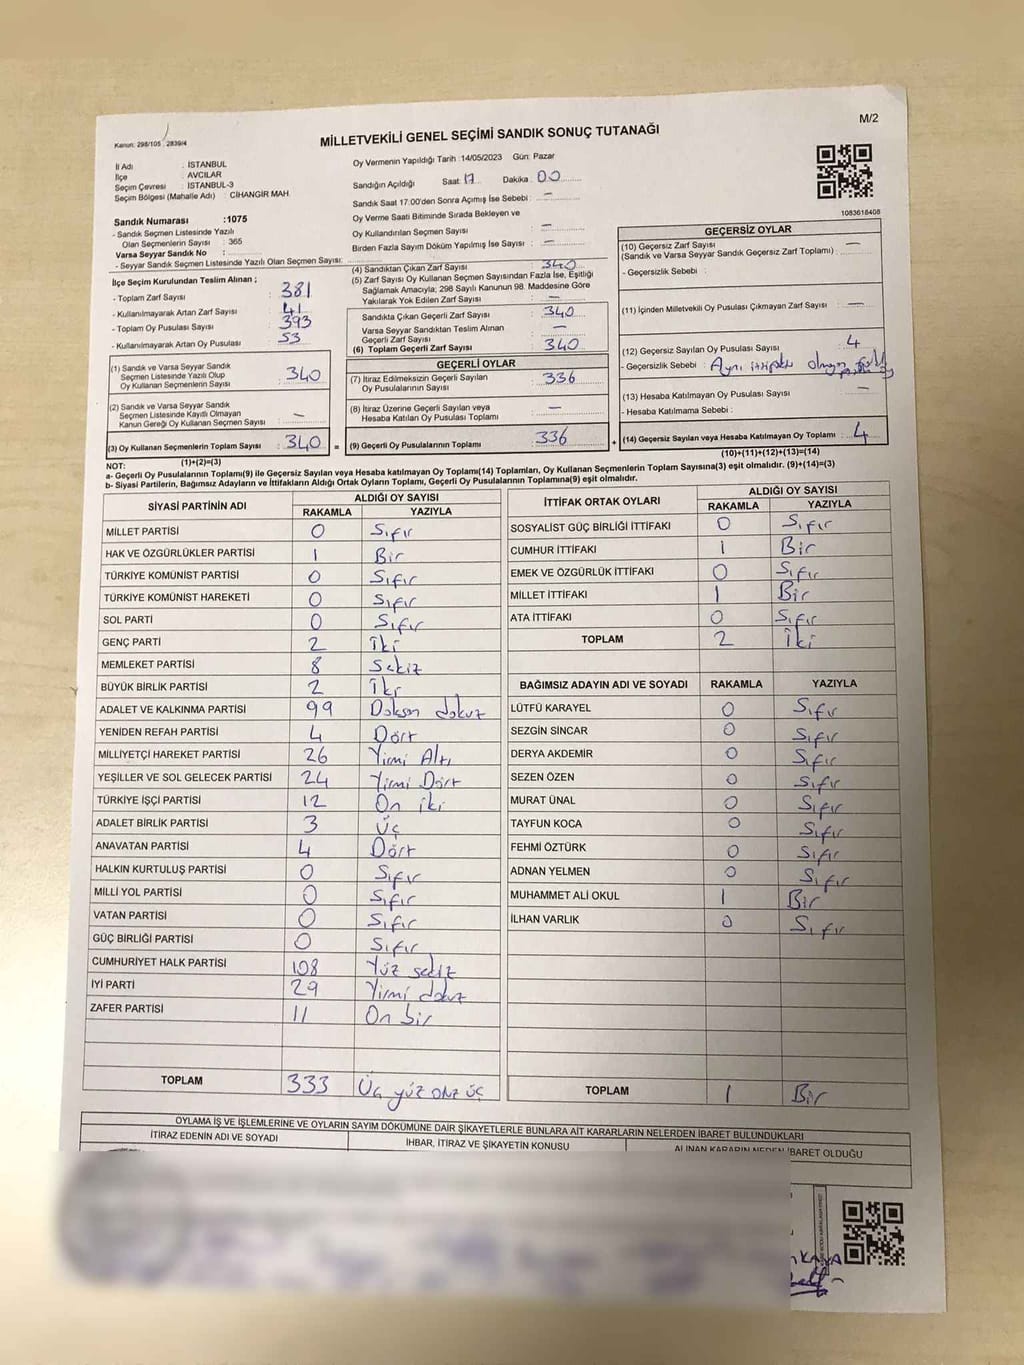 M/2
Kanun: 298/105 2839/4
MİLLETVEKİLİ GENEL SEÇİMİ SANDIK SONUÇ TUTANAĞI
İl Adı : İSTANBUL
İlçe : AVCILAR
Seçim Çevresi : İSTANBUL-3
Seçim Bölgesi (Mahalle Adı) : CİHANGİR MAH.
Oy Vermenin Yapıldığı Tarih :14/05/2023 Gün: Pazar
Sandığın Açıldığı Saat: 17 Dakika: 00
Sandık Saat 17.00'den Sonra Açılmış İse Sebebi : —
Oy Verme Saati Bitiminde Sırada Bekleyen ve
Oy Kullandırılan Seçmen Sayısı : —
Birden Fazla Sayım Döküm Yapılmış İse Sayısı : —
1083618408
Sandık Numarası :1075
- Sandık Seçmen Listesinde Yazılı
Olan Seçmenlerin Sayısı : 365
Varsa Seyyar Sandık No :
- Seyyar Sandık Seçmen Listesinde Yazılı Olan Seçmen Sayısı:
İlçe Seçim Kurulundan Teslim Alınan ;
- Toplam Zarf Sayısı : 381
- Kullanılmayarak Artan Zarf Sayısı : 41
- Toplam Oy Pusulası Sayısı : 393
- Kullanılmayarak Artan Oy Pusulası : 53
(1) Sandık ve Varsa Seyyar Sandık
Seçmen Listesinde Yazılı Olup
Oy Kullanan Seçmenlerin Sayısı : 340
(2) Sandık ve Varsa Seyyar Sandık
Seçmen Listesinde Kayıtlı Olmayan
Kanun Gereği Oy Kullanan Seçmen Sayısı : —
(3) Oy Kullanan Seçmenlerin Toplam Sayısı : 340
(1)+(2)=(3)
(4) Sandıktan Çıkan Zarf Sayısı : 340
(5) Zarf Sayısı Oy Kullanan Seçmen Sayısından Fazla İse, Eşitliği
Sağlamak Amacıyla; 298 Sayılı Kanunun 98. Maddesine Göre
Yakılarak Yok Edilen Zarf Sayısı : —
Sandıkta Çıkan Geçerli Zarf Sayısı : 340
Varsa Seyyar Sandıktan Teslim Alınan
Geçerli Zarf Sayısı : —
(6) Toplam Geçerli Zarf Sayısı : 340
GEÇERLİ OYLAR
(7) İtiraz Edilmeksizin Geçerli Sayılan
Oy Pusulalarının Sayısı : 336
(8) İtiraz Üzerine Geçerli Sayılan veya
Hesaba Katılan Oy Pusulası Toplamı : —
= (9) Geçerli Oy Pusulalarının Toplamı : 336
GEÇERSİZ OYLAR
(10) Geçersiz Zarf Sayısı : —
(Sandık ve Varsa Seyyar Sandık Geçersiz Zarf Toplamı)
- Geçersizlik Sebebi :
(11) İçinden Milletvekili Oy Pusulası Çıkmayan Zarf Sayısı : —
(12) Geçersiz Sayılan Oy Pusulası Sayısı : 4
- Geçersizlik Sebebi : Aynı ittifakı olmayan
(13) Hesaba Katılmayan Oy Pusulası Sayısı : —
- Hesaba Katılmama Sebebi :
+ (14) Geçersiz Sayılan veya Hesaba Katılmayan Oy Toplamı : 4
(10)+(11)+(12)+(13)=(14)
NOT:
a- Geçerli Oy Pusulalarının Toplamı(9) ile Geçersiz Sayılan veya Hesaba katılmayan Oy Toplamı(14) Toplamları, Oy Kullanan Seçmenlerin Toplam Sayısına(3) eşit olmalıdır. (9)+(14)=(3)
b- Siyasi Partilerin, Bağımsız Adayların ve İttifakların Aldığı Ortak Oyların Toplamı, Geçerli Oy Pusulalarının Toplamına(9) eşit olmalıdır.
SİYASİ PARTİNİN ADI ALDIĞI OY SAYISI
RAKAMLA YAZIYLA
MİLLET PARTİSİ 0 Sıfır
HAK VE ÖZGÜRLÜKLER PARTİSİ 1 Bir
TÜRKİYE KOMÜNİST PARTİSİ 0 Sıfır
TÜRKİYE KOMÜNİST HAREKETİ 0 Sıfır
SOL PARTİ 0 Sıfır
GENÇ PARTİ 2 İki
MEMLEKET PARTİSİ 8 Sekiz
BÜYÜK BİRLİK PARTİSİ 2 İki
ADALET VE KALKINMA PARTİSİ 99 Doksan dokuz
YENİDEN REFAH PARTİSİ 4 Dört
MİLLİYETÇİ HAREKET PARTİSİ 26 Yirmi Altı
YEŞİLLER VE SOL GELECEK PARTİSİ 24 Yirmi Dört
TÜRKİYE İŞÇİ PARTİSİ 12 On iki
ADALET BİRLİK PARTİSİ 3 Üç
ANAVATAN PARTİSİ 4 Dört
HALKIN KURTULUŞ PARTİSİ 0 Sıfır
MİLLİ YOL PARTİSİ 0 Sıfır
VATAN PARTİSİ 0 Sıfır
GÜÇ BİRLİĞİ PARTİSİ 0 Sıfır
CUMHURİYET HALK PARTİSİ 108 Yüz sekiz
İYİ PARTİ 29 Yirmi dokuz
ZAFER PARTİSİ 11 On bir
TOPLAM 333 Üç yüz otuz üç
İTTİFAK ORTAK OYLARI ALDIĞI OY SAYISI
RAKAMLA YAZIYLA
SOSYALİST GÜÇ BİRLİĞİ İTTİFAKI 0 Sıfır
CUMHUR İTTİFAKI 1 Bir
EMEK VE ÖZGÜRLÜK İTTİFAKI 0 Sıfır
MİLLET İTTİFAKI 1 Bir
ATA İTTİFAKI 0 Sıfır
TOPLAM 2 İki
BAĞIMSIZ ADAYIN ADI VE SOYADI RAKAMLA YAZIYLA
LÜTFÜ KARAYEL 0 Sıfır
SEZGİN SİNCAR 0 Sıfır
DERYA AKDEMİR 0 Sıfır
SEZEN ÖZEN 0 Sıfır
MURAT ÜNAL 0 Sıfır
TAYFUN KOCA 0 Sıfır
FEHMİ ÖZTÜRK 0 Sıfır
ADNAN YELMEN 0 Sıfır
MUHAMMET ALİ OKUL 1 Bir
İLHAN VARLIK 0 Sıfır
TOPLAM 1 Bir
OYLAMA İŞ VE İŞLEMLERİNE VE OYLARIN SAYIM DÖKÜMÜNE DAİR ŞİKAYETLERLE BUNLARA AİT KARARLARIN NELERDEN İBARET BULUNDUKLARI
İTİRAZ EDENİN ADI VE SOYADI İHBAR, İTİRAZ VE ŞİKAYETİN KONUSU ALINAN KARARIN NEDEN İBARET OLDUĞU